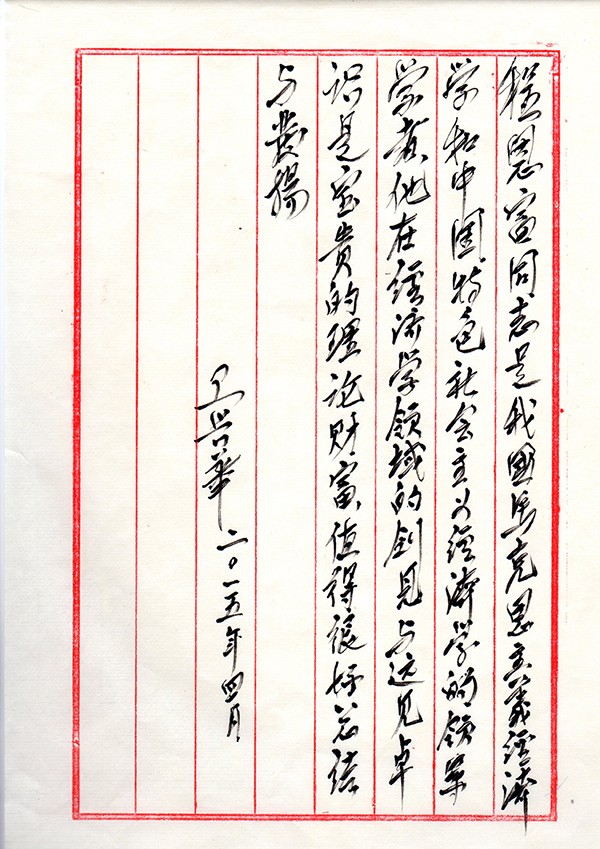 程恩富同志是我國馬克思主義経濟
学和中国特色社会主义经濟学的领军
学者他在经济学领域的创见与远见卓
识是宝贵的理论财富值得很好总结
与发揚
王兴华 二〇一五年四月